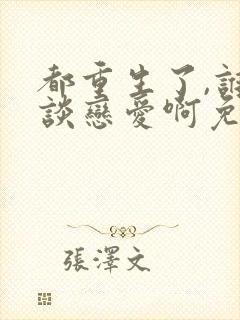 都重生了,誰
談戀愛啊免
張澤文